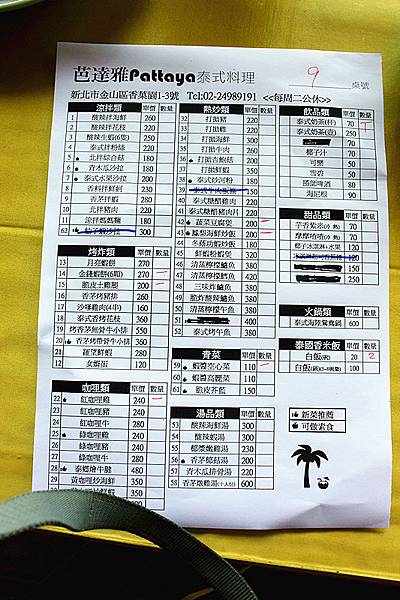 芭達雅Pattaya泰式料理
9 桌號
新北市金山區香菓園1-3號 Tel:02-24989191 <<每周二公休>>
涼拌類 單價 數量
1 酸辣拌海鮮 260
2 酸辣拌花枝 220
3 酸辣生蝦(6隻) 250
4 泰式拌粉絲 220
5 北拌綜合菇 180
6 青木瓜沙拉 180
7 泰式水果沙拉 180
8 香料拌鮮蚵 230
9 香茅拌蝦 280
10 北拌豬肉 220
11 涼拌媽媽麵 180
62 柚子蝦沙拉 300
烤炸類 單價 數量
13 月亮蝦餅 270
14 金錢蝦餅(6顆) 270 一
15 脆皮土雞腿 200 一
16 香茅烤豬排 260
17 沙嗲雞肉(4串) 160
18 泰式香烤花枝 360
19 烤香茅無骨牛小排 550
20 香茅烤帶骨牛小排 400
21 羅望鮮蝦 280
12 女婿蛋 120
咖哩類 單價 數量
22 紅咖哩雞 240 一
23 紅咖哩豬
24 紅咖哩牛
25 綠咖哩雞
26 綠咖哩豬
27 綠咖哩牛
28 泰鄉燴牛腱 480
29 黃咖哩炒海鮮 350
240
熱炒類 單價 數量
32 打拋豬 200
33 打拋雞 200
34 打拋海鮮 280
35 打拋牛肉 260
36 打拋杏鮑菇 200
37 打拋鮮蝦 350
38 泰式炒河粉 180
39 150
40 泰式醋醋雞肉 220
41 泰式醋醋豬肉片 220
42 蔬菜豆腐煲 200 一
43 鳳梨海鮮炒飯 200 一
44 冬蔭功蝦炒飯 180
45 鮮蝦粉蝦煲 350
46 清蒸檸檬鱸魚 380
47 清蒸檸檬魷魚 420
48 三味炸鱸魚 380
49 脆炸酸辣鱸魚 380
50 清蒸檸檬午魚 380
51 400
52 泰式烤午魚 380
青菜 單價 數量
59 蝦醬空心菜 110 一
60 蝦醬高麗菜 110
61 脆皮芥藍 150
湯品類 單價 數量
53 酸辣海鮮湯 300
54 酸辣蝦湯 300
57 椰漿嫩雞湯 300
56 香茅椰菇湯 200
55 青木瓜排骨湯 220
58 香茅燉雞湯(十人份) 600
飲品類 單價 數量
泰式奶茶(杯) 70 1
泰式奶茶(壺) 250
70
椰子汁 70
可樂 50
雪碧 50
勝獅啤酒 80
海尼根 90
甜品類 單價 數量
芋香紫米(冷 熱) 70
摩摩喳喳(冷 熱) 70
椰子冰淇淋+水果 120
120
150
250
火鍋類 單價 數量
泰式海陸鴛鴦鍋 600
泰國香米飯 單價 數量
白飯(碗) 20 2
白飯(鍋)x5-8碗量 100
新菜推薦
可做素食